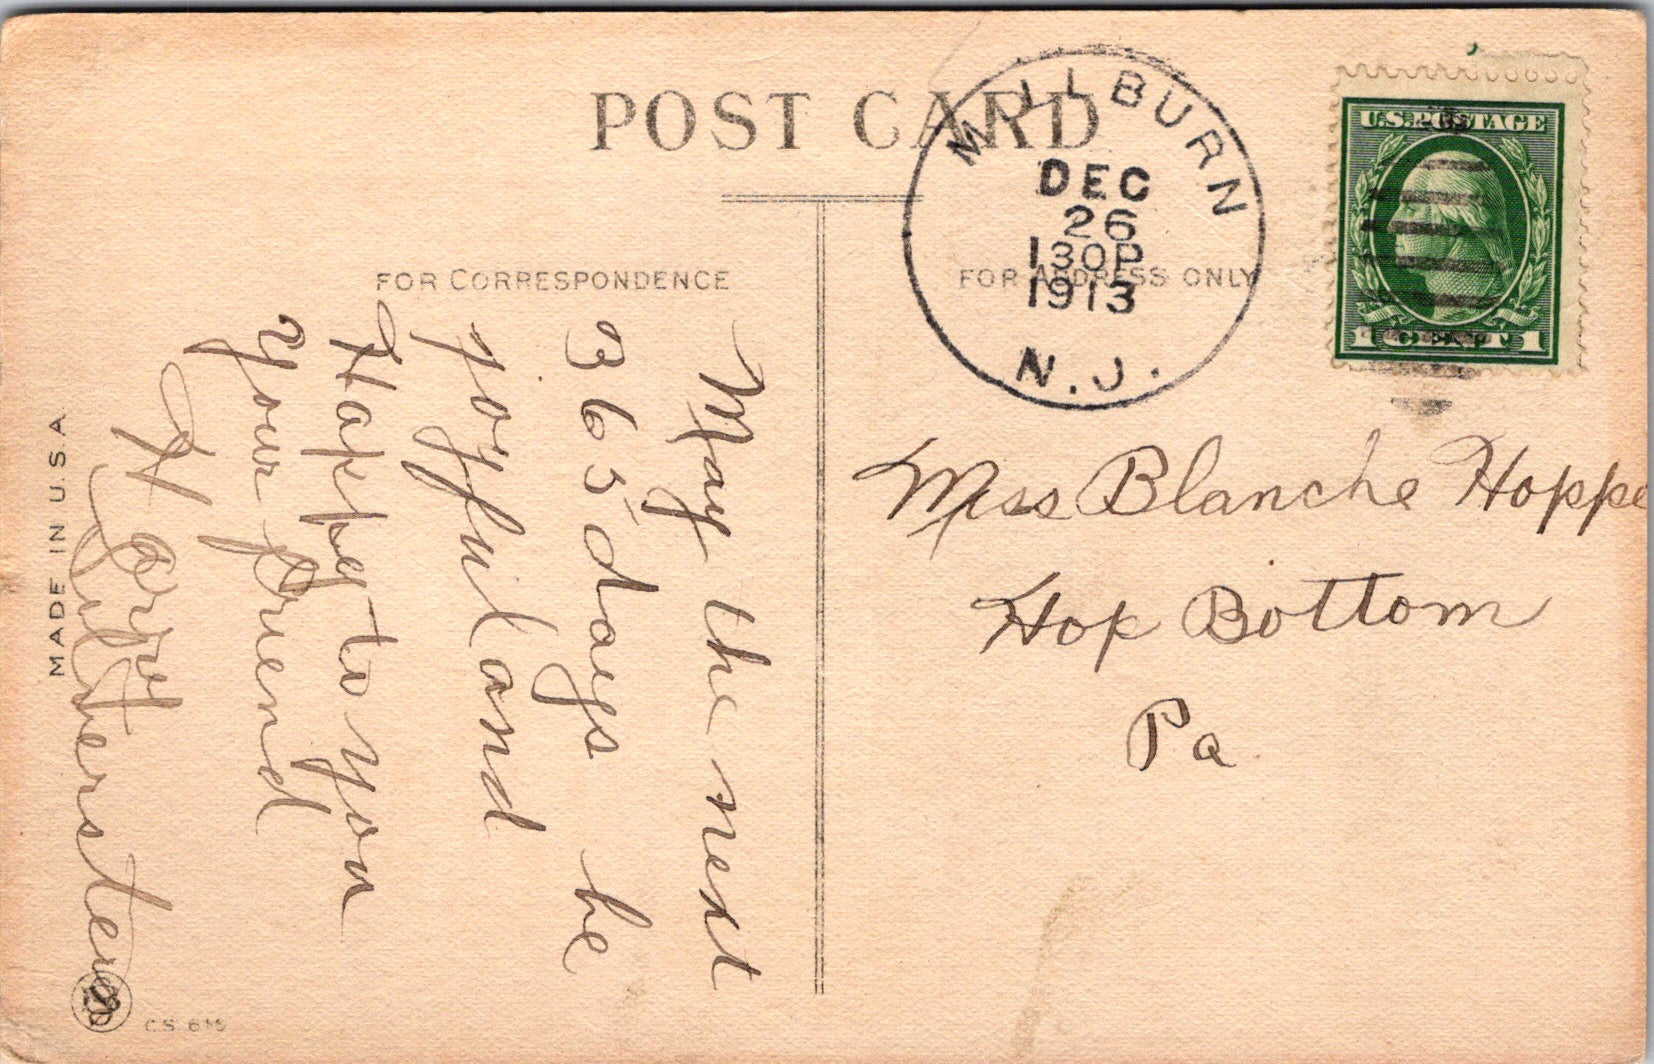 POST CARD
MILLBURN
DEC
26
130P
1913
N.J.
U.S. POSTAGE
1 CENT 1
FOR CORRESPONDENCE
FOR ADDRESS ONLY
May the next
365 days be
joyful and
Happy to you
Your Friend
Harry
Miss Blanche Hoppe
Hop Bottom
Pa
MADE IN U.S.A.
C.S. 6